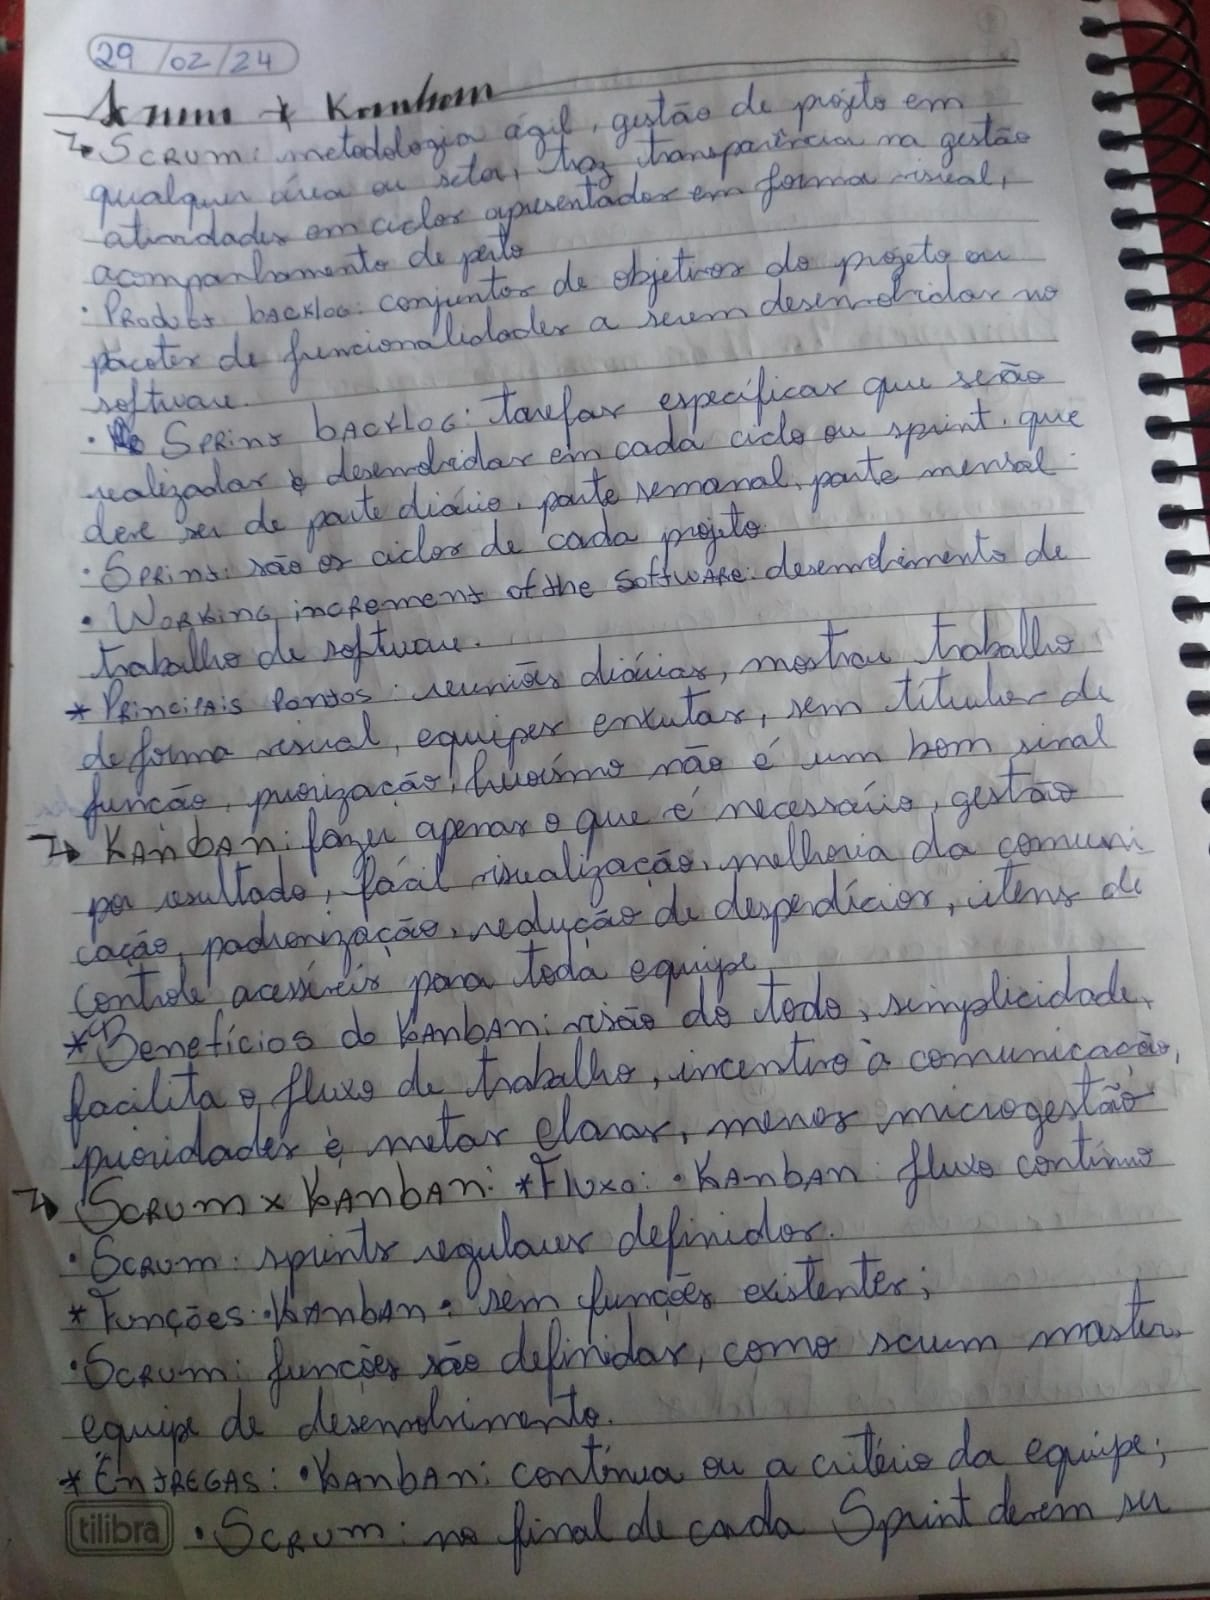 29/02/24
Scrum + Kanban
→ • SCRUM: metodologia ágil, gestão de projeto em
qualquer área ou setor, traz transparência na gestão
atividades em ciclos apresentados em forma visual,
acompanhamento de perto
• PRODUCT BACKLOG: conjuntos de objetivos do projeto ou
pacotes de funcionalidades a serem desenvolvidas no
software.
• SPRINT BACKLOG: tarefas específicas que serão
realizadas e desenvolvidas em cada ciclo ou sprint, que
deve ser de parte diário, parte semanal, parte mensal.
• SPRINT: são os ciclos de cada projeto
• WORKING INCREMENT of the SOFTWARE: desenvolvimento de
trabalho de software.
* PRINCIPAIS PONTOS: reuniões diárias, mostrar trabalho
de forma visual, equipes enxutas, sem títulos de
função, priorização, heroísmo não é um bom sinal
→ KANBAN: fazer apenas o que é necessário, gestão
por resultado, fácil visualização, melhoria da comuni
cação, padronização, redução de desperdícios, itens de
controle acessíveis para toda equipe
* Benefícios do KANBAN: visão do todo, simplicidade,
facilita o fluxo de trabalho, incentivo à comunicação,
prioridades e metas claras, menos microgestão
→ SCRUM x KANBAN: * FLUXO: • KANBAN: fluxo contínuo
• SCRUM: sprints regulares definidos.
* FUNÇÕES: • KANBAN: sem funções existentes;
• SCRUM: funções são definidas, como scrum master,
equipe de desenvolvimento.
* ENTREGAS: • KANBAN: contínua ou a critério da equipe;
tilibra • SCRUM: no final de cada Sprint devem ser